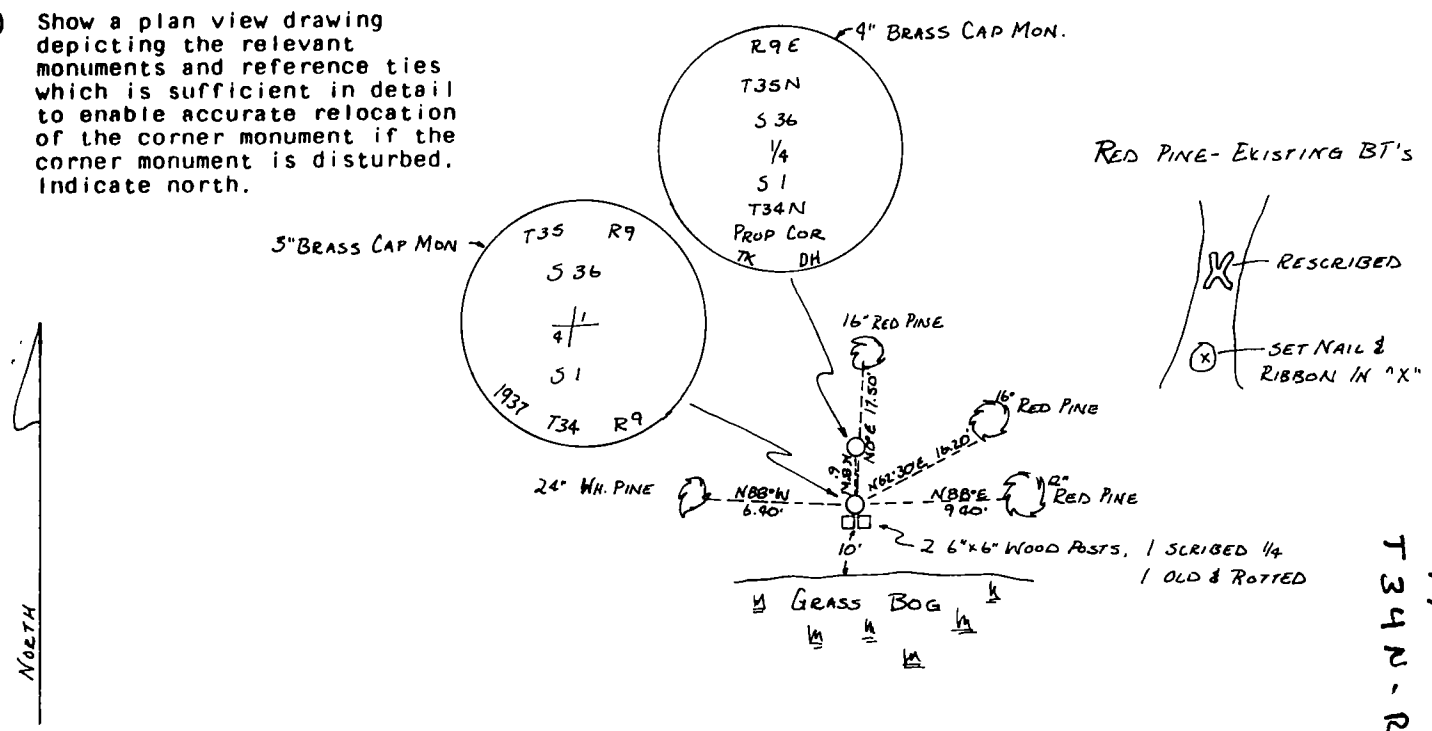 Show a plan view drawing
depicting the relevant
monuments and reference ties
which is sufficient in detail
to enable accurate relocation
of the corner monument if the
corner monument is disturbed.
Indicate north.
4" BRASS CAP MON.
R9E
T35N
S 36
1/4
S 1
T34N
PROP COR
TK DH
3" BRASS CAP MON
T35 R9
S 36
1
4
S 1
1937 T34 R9
RED PINE - EXISTING BT'S
RESCRIBED
SET NAIL &
RIBBON IN "X"
16" RED PINE
N0°E 17.50'
16" RED PINE
N62°30'E 16.20'
24" WH. PINE
N88°W
6.40'
N88°E
9.40'
12" RED PINE
10'
2 6"x6" WOOD POSTS, 1 SCRIBED 1/4
1 OLD & ROTTED
GRASS BOG
NORTH
T34N-R